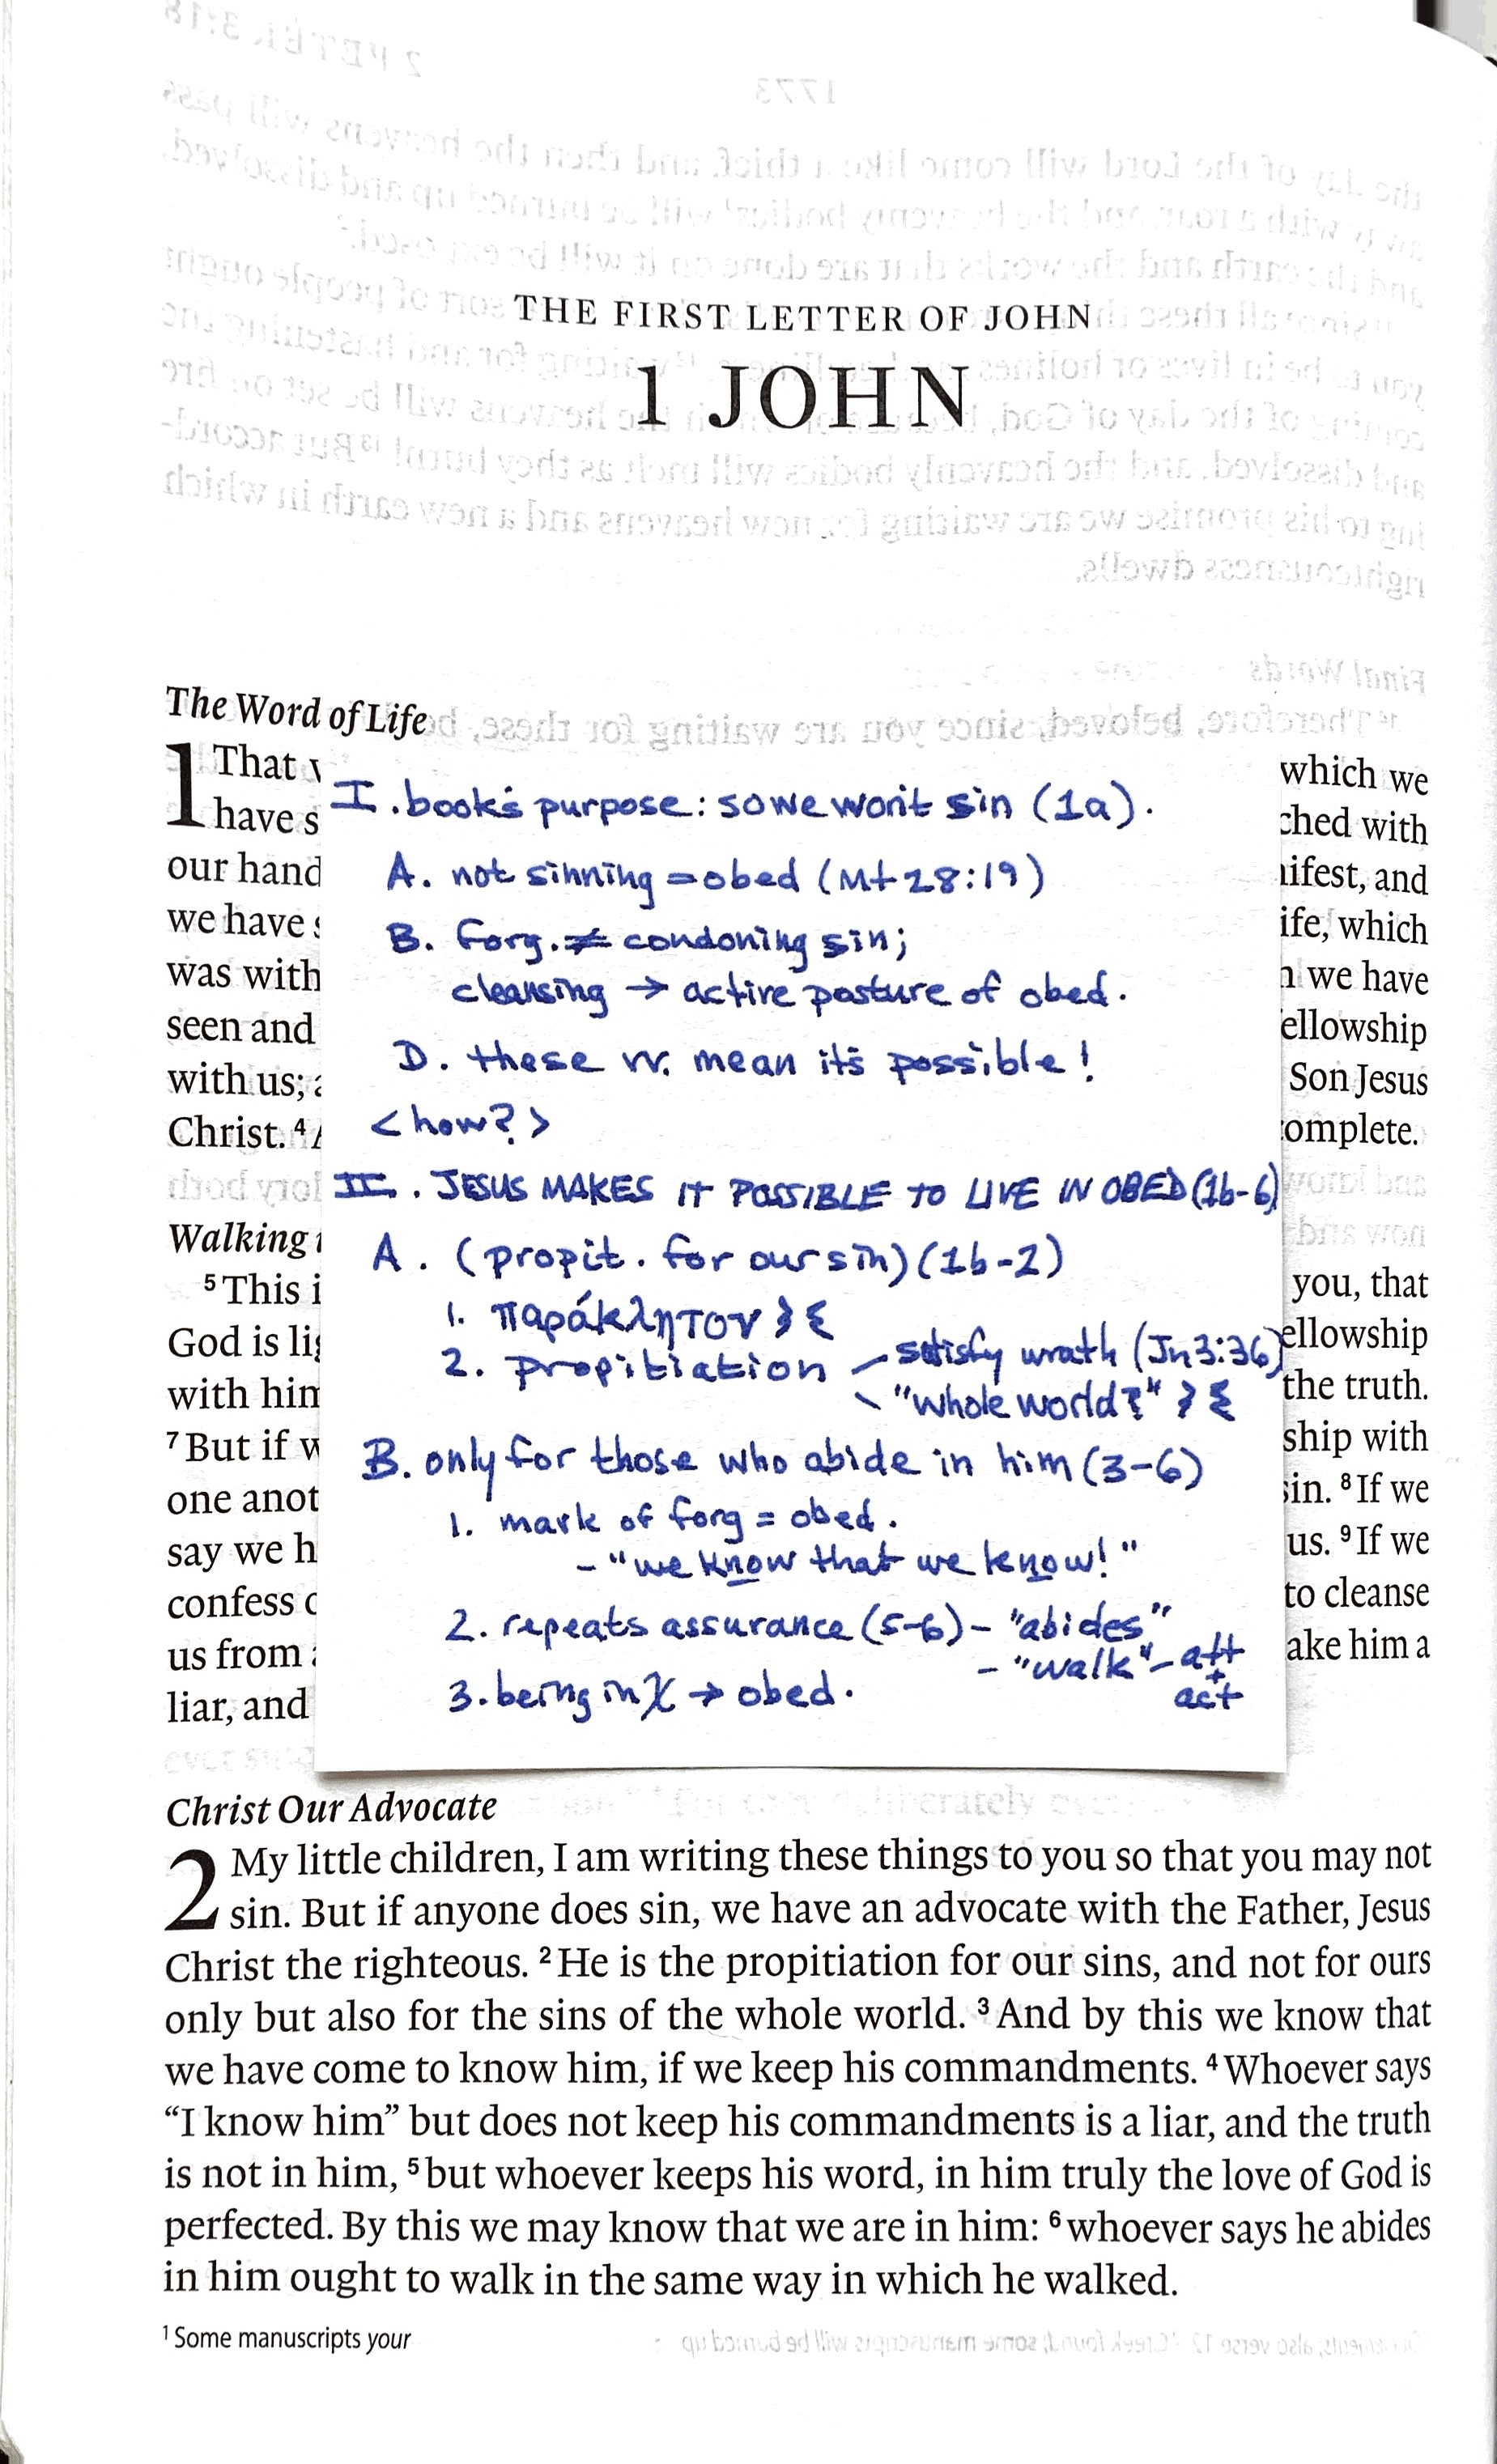 THE FIRST LETTER OF JOHN
1 JOHN
The Word of Life
1 That
have s
our hand
we have
was with
seen and
with us;
Christ. 4
Walking
5 This i
God is lig
with him
7 But if w
one anot
say we h
confess
us from
liar, and
I. book's purpose: so we won't sin (1a).
A. not sinning = obed (Mt 28:19)
B. forg. ≠ condoning sin;
cleansing → active posture of obed.
D. these vv. mean it's possible!
<how?>
II. JESUS MAKES IT POSSIBLE TO LIVE IN OBED (1b-6)
A. (propit. for our sin) (1b-2)
1. παράκλητον
2. propitiation - satisfy wrath (Jn 3:36)
\ "whole world?"
B. only for those who abide in him (3-6)
1. mark of forg = obed.
- "we know that we know!"
2. repeats assurance (5-6) - "abides"
- "walk" - att
+
act
3. being in X → obed.
which we
ched with
nifest, and
ife, which
we have
ellowship
Son Jesus
omplete.
you, that
ellowship
the truth.
ship with
sin. 8 If we
us. 9 If we
to cleanse
ake him a
Christ Our Advocate
2 My little children, I am writing these things to you so that you may not
sin. But if anyone does sin, we have an advocate with the Father, Jesus
Christ the righteous. 2 He is the propitiation for our sins, and not for ours
only but also for the sins of the whole world. 3 And by this we know that
we have come to know him, if we keep his commandments. 4 Whoever says
“I know him” but does not keep his commandments is a liar, and the truth
is not in him, 5 but whoever keeps his word, in him truly the love of God is
perfected. By this we may know that we are in him: 6 whoever says he abides
in him ought to walk in the same way in which he walked.
1 Some manuscripts your